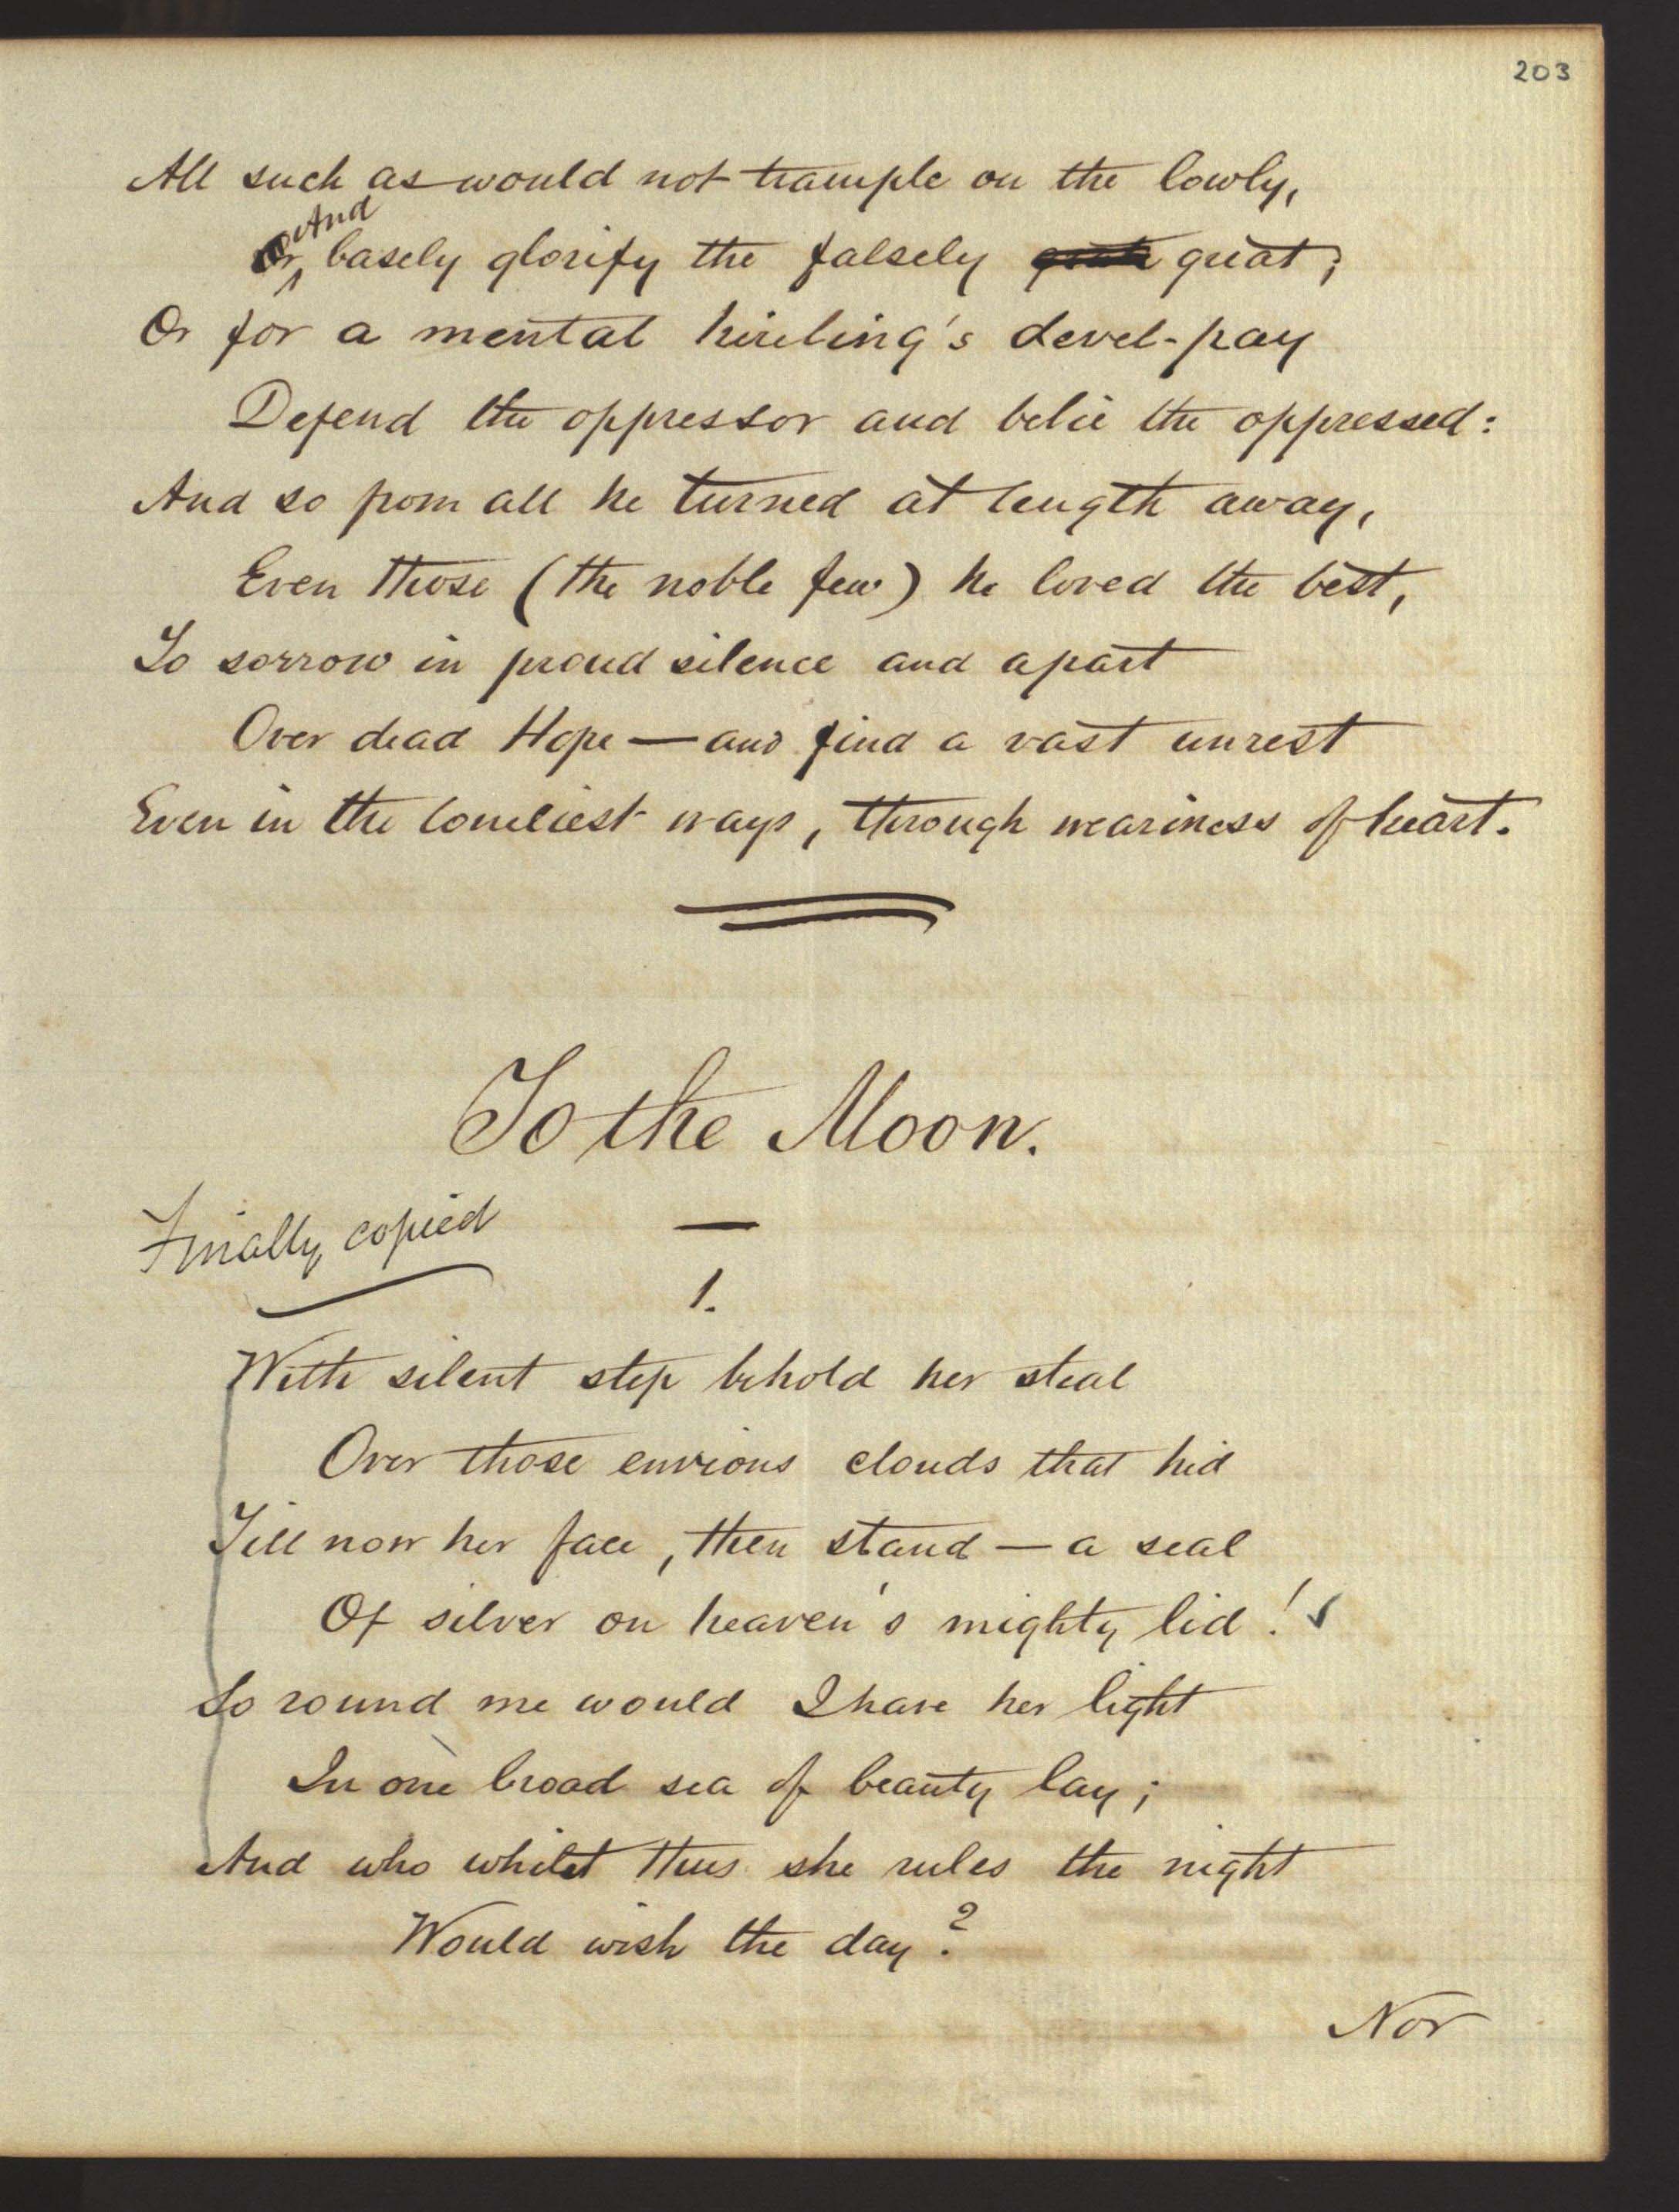 203
All such as would not trample on the lowly,
And
Or, basely glorify the falsely great;
Or for a mental hireling's devel-pay
Defend the oppressor and belie the oppressed:
And so from all he turned at length away,
Even those (the noble few) he loved the best,
To sorrow in proud silence and apart
Over dead Hope — and find a vast unrest
Even in the loneliest ways, through weariness of heart.
To the Moon.
Finally copied
1.
With silent step behold her steal
Over those envious clouds that hid
Till now her face, then stand — a seal
Of silver on heaven's mighty lid!
So round me would I have her light
In one broad sea of beauty lay;
And who whilst thus she rules the night
Would wish the day?
Nor